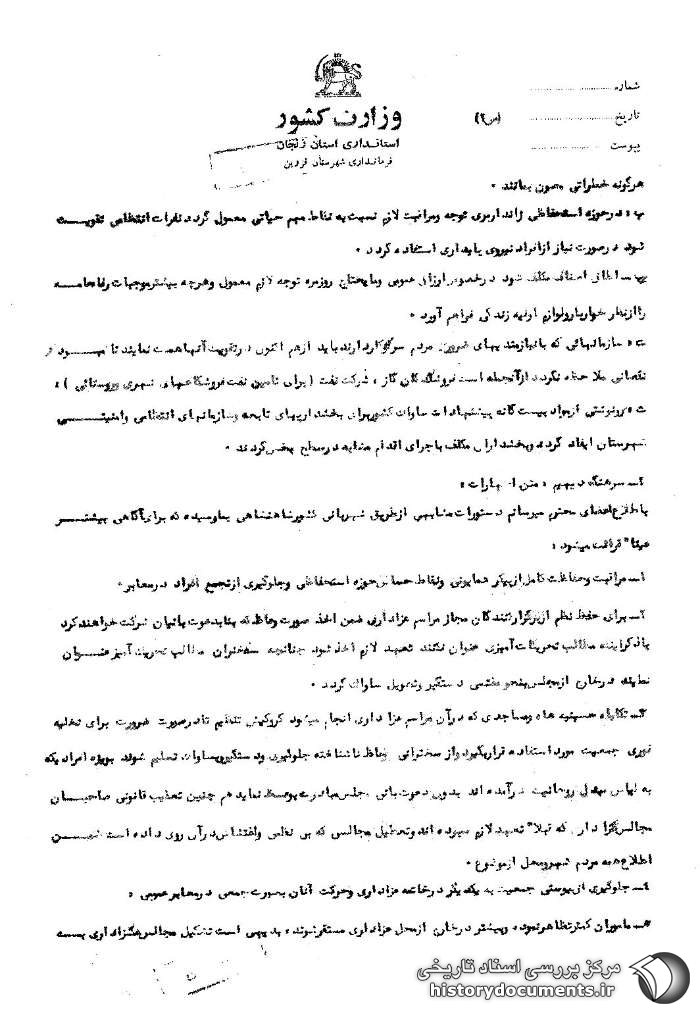 شماره
تاریخ
(ص۲)
پیوست
وزارت کشور
استانداری استان زنجان
فرمانداری شهرستان قزوین
هرگونه خطراتی مصون بمانند ۰
پ : در حوزه استحفاظی ژاندارمری توجه ومراقبت لازم نسبت به نقاط مهم حیاتی معمول گردد نفرات انتظامی تقویت
شود درصورت نیاز از افراد نیروی پایداری استفاده گردد ۰
اطاق اصناف مکلف شود درخصوص ارزاق عمومی ومایحتاج روزمره توجه لازم معمول وهرچه بیشتر موجبات رفاه عامه
را از نظر خواربار ولوازم اولیه زندگی فراهم آورد ۰
ت : سازمانهائی که با نیازمندیهای ضروری مردم سروکار دارند باید از هم اکنون در تقویت آنها همت نمایند تا کمبود و
نقصانی ملاحظه نگردد ازآنجمله است فروشندگان گاز ، شرکت نفت ( برای تامین نفت فروشگاههای شهری وروستائی ) :
ث : رونوشتی از مواد بیست گانه پیشنهادات ساواک کشور برای بخشداریهای تابعه وسازمانهای انتظامی وامنیتی
شهرستان ایفاد گردد وبخشداران مکلف باجرای اقدام مشابه در سطح بخش گردند ۰
سرهنگ دیهیم : متن اظهارات :
باطلاع اعضای محترم میرسانم دستورات مشابهی ازطریق شهربانی کشور شاهنشاهی بما رسیده که برای آگاهی بیشتر
عینا" قرائت میشود :
۱ــ مراقبت وحفاظت کامل از پیکر همایونی ونقاط حساس حوزه استحفاظی وجلوگیری از تجمع افراد در معابر ۰
۲ــ برای حفظ نظم از برگزارکنندگان مجاز مراسم عزاداری ضمن اخذ صورت وعاظ که بنابدعوت بانیان شرکت خواهند کرد
یا ذکر اینکه مطالب تحریکات آمیزی عنوان نکنند تعهد لازم اخذ شود چنانچه سخنران مطالب تحریک آمیز عنوان
نماید در خارج از مجلس بنحو مقتضی دستگیر وتحویل ساواک گردد ۰
۳ــ تکایا، حسینیه ها ومساجدی که درآن مراسم عزاداری انجام میشود کروکیش تنظیم تا درصورت ضرورت برای تخلیه
فوری جمعیت مورد استفاده قرارگیرد واز سخنرانی وعاظ ناشناخته جلوگیری ودستگیر وبساواک تسلیم شوند بویژه افرادیکه
به لباس مبدل روحانیت درآمده اند بدون دعوت بانی مجلس مبادرت بوعظ نماید هم چنین تعقیب قانونی صاحبان
مجالس عزاداری که قبلا" تعهد لازم سپرده اند وتعطیل مجالسی که بی نظمی واغتشاش درآن روی داده است ضمن
اطلاع به مردم شهر ومحل از موضوع ۰
۴ــ جلوگیری از پیوستن جمعیت به یکدیگر در خاتمه عزاداری وحرکت آنان بصورت جمعی در معابر عمومی ۰
۵ــ ماموران کمتر تظاهر نموده وبیشتر در خارج از محل عزاداری مستقر شوند : بدیهی است تشکیل مجالس عزاداری بسته
مرکز بررسی اسناد تاریخی
historydocuments.ir